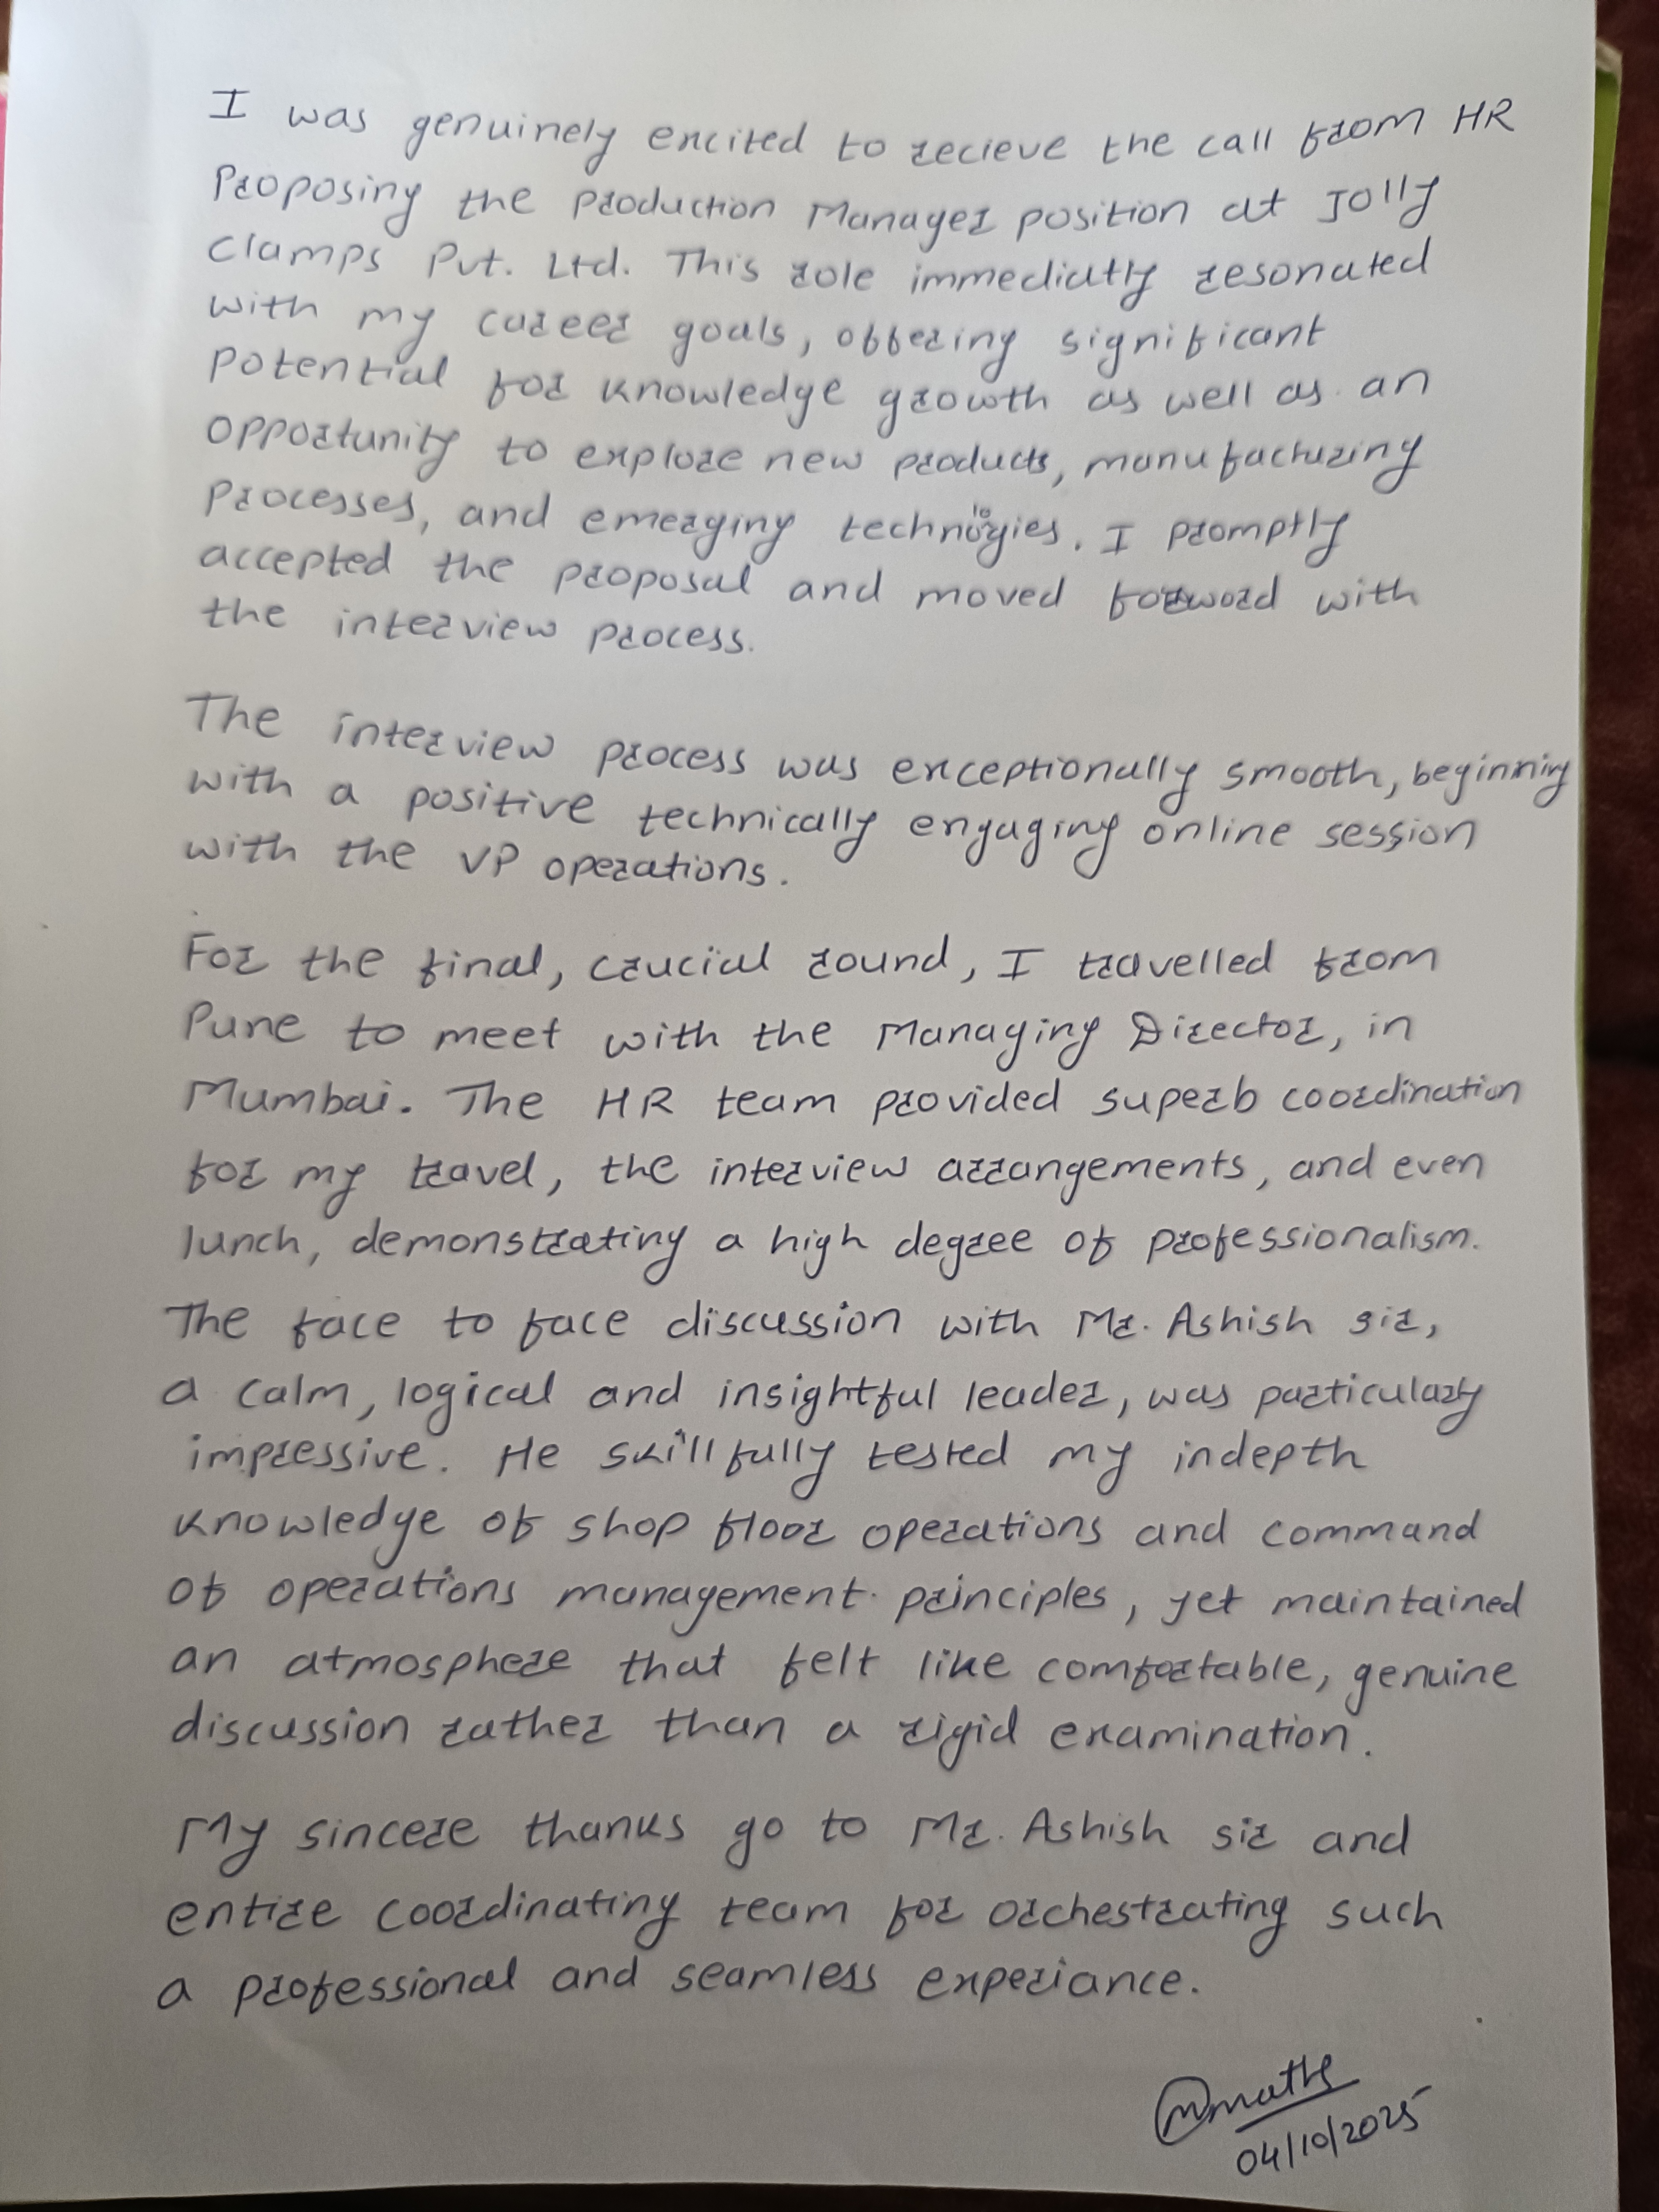 I was genuinely excited to recieve the call from HR
Proposing the Production Manager position at Jolly
Clamps Pvt. Ltd. This role immediatly resonated
with my career goals, offering significant
Potential for knowledge growth as well as an
opportunity to explore new products, manufacturing
Processes, and emerging technologies. I promptly
accepted the proposal and moved forword with
the interview process.
The interview process was exceptionally smooth, beginning
with a positive technically engaging online session
with the VP operations.
For the final, crucial round, I travelled from
Pune to meet with the Managing Director, in
Mumbai. The HR team provided superb coordination
for my travel, the interview arrangements, and even
lunch, demonstrating a high degree of professionalism.
The face to face discussion with Mr. Ashish sir,
a calm, logical and insightful leader, was particulary
impressive. He skillfully tested my indepth
knowledge of shop floor operations and command
of operations management principles, yet maintained
an atmosphere that felt like comfortable, genuine
discussion rather than a rigid examination.
My sincere thanks go to Mr. Ashish sir and
entire coordinating team for orchestrating such
a professional and seamless experiance.
04/10/2025